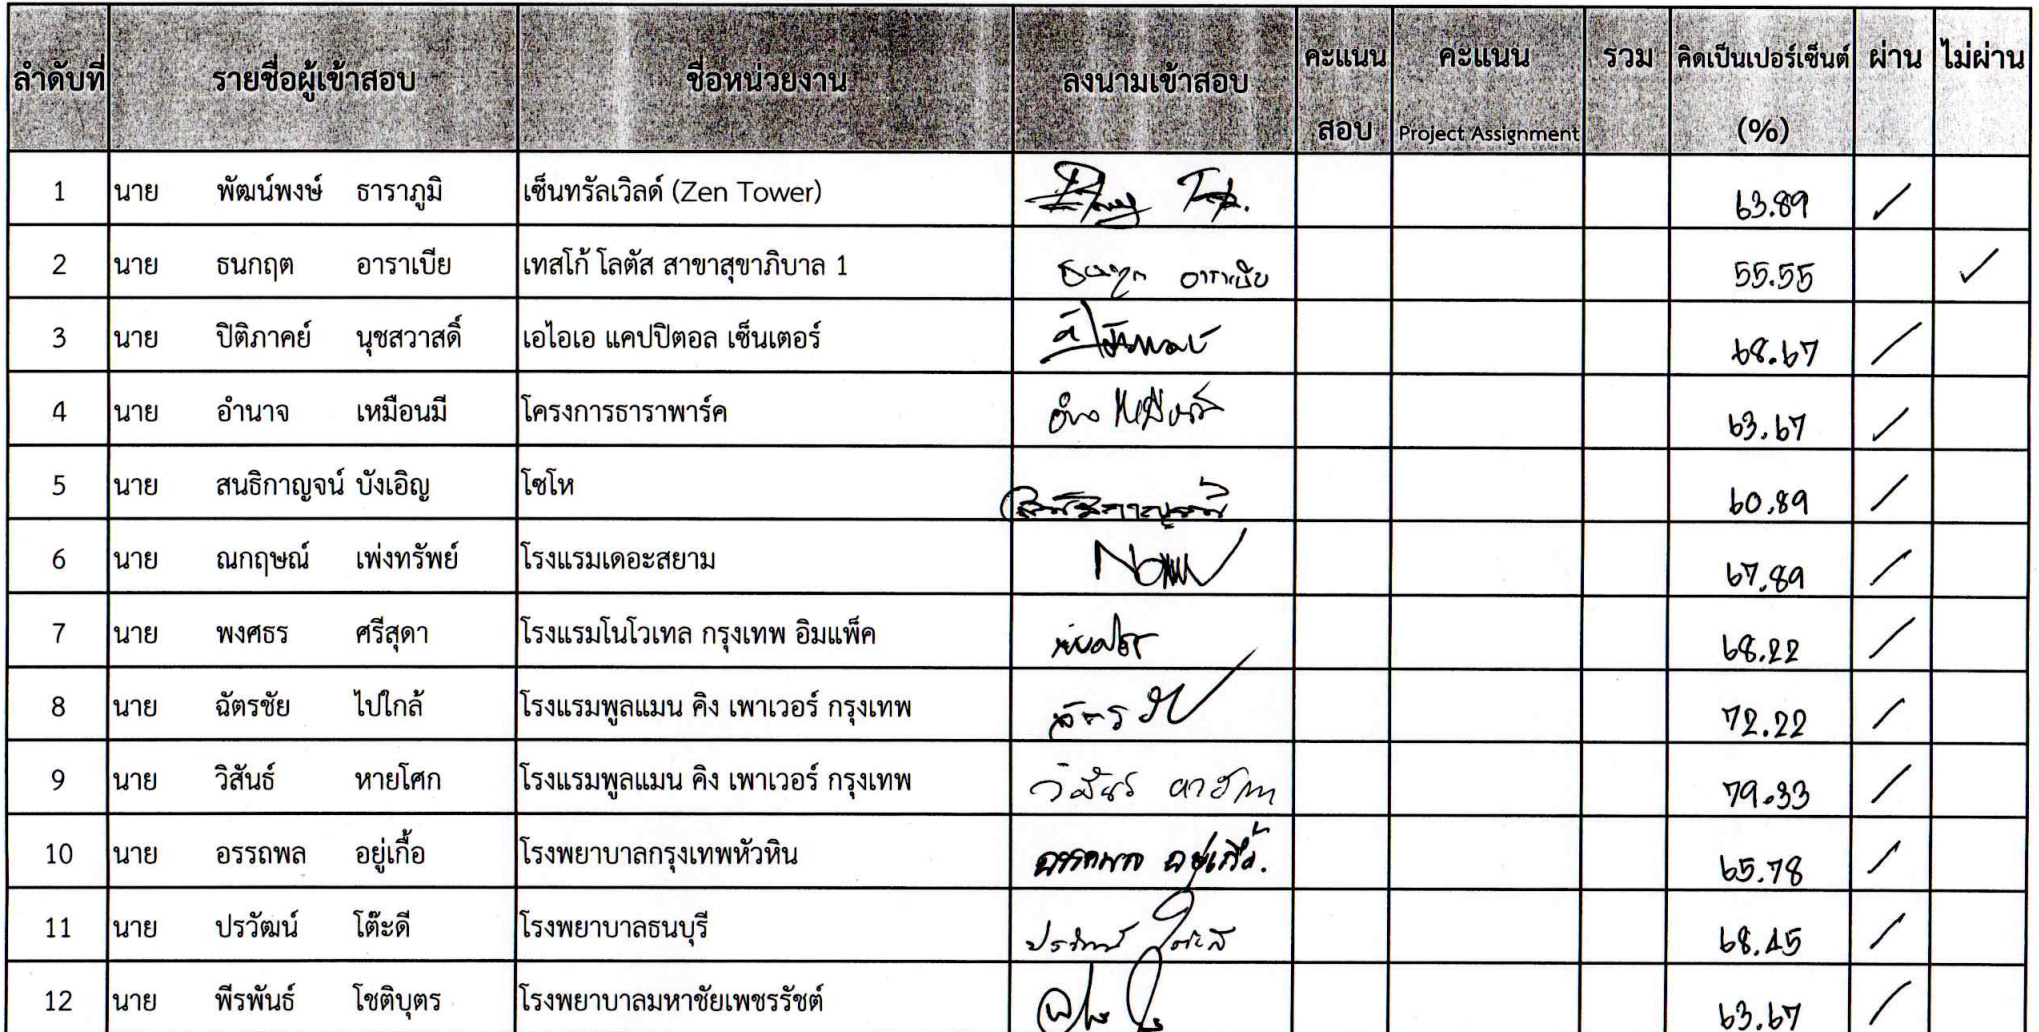 ลำดับที่ รายชื่อผู้เข้าสอบ ชื่อหน่วยงาน ลงนามเข้าสอบ คะแนน คะแนน รวม คิดเป็นเปอร์เซ็นต์ ผ่าน ไม่ผ่าน
สอบ Project Assignment (%)
1 นาย พัฒน์พงษ์ ธาราภูมิ เซ็นทรัลเวิลด์ (Zen Tower) 63.89 /
2 นาย ธนกฤต อาราเบีย เทสโก้ โลตัส สาขาสุขาภิบาล 1 ธนกฤต อาราเบีย 55.55 ✓
3 นาย ปิติภาคย์ นุชสวาสดิ์ เอไอเอ แคปปิตอล เซ็นเตอร์ 68.67 /
4 นาย อำนาจ เหมือนมี โครงการธาราพาร์ค 63.67 /
5 นาย สนธิกาญจน์ บังเอิญ โซโห สนธิกาญจน์ 60.89 /
6 นาย ณกฤษณ์ เพ่งทรัพย์ โรงแรมเดอะสยาม 67.89 /
7 นาย พงศธร ศรีสุดา โรงแรมโนโวเทล กรุงเทพ อิมแพ็ค พงศธร 68.22 /
8 นาย ฉัตรชัย ไปใกล้ โรงแรมพูลแมน คิง เพาเวอร์ กรุงเทพ 72.22 /
9 นาย วิสันธ์ หายโศก โรงแรมพูลแมน คิง เพาเวอร์ กรุงเทพ วิสันธ์ หายโศก 79.33 /
10 นาย อรรถพล อยู่เกื้อ โรงพยาบาลกรุงเทพหัวหิน อรรถพล อยู่เกื้อ. 65.78 /
11 นาย ปรวัฒน์ โต๊ะดี โรงพยาบาลธนบุรี ปรวัฒน์ โต๊ะดี 68.45 /
12 นาย พีรพันธ์ โชติบุตร โรงพยาบาลมหาชัยเพชรรัชต์ 63.67 /